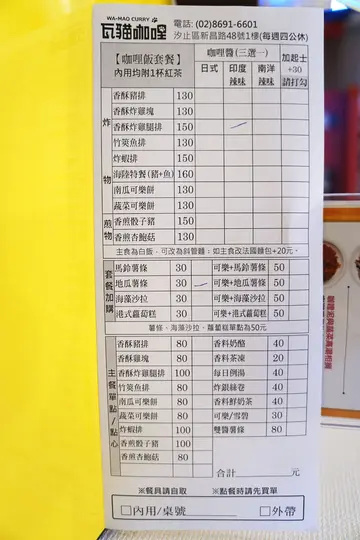 WA-MAO CURRY
瓦貓咖哩
電話: (02)8691-6601
汐止區新昌路48號1樓(每週四公休)
【咖哩飯套餐】
內用均附1杯紅茶
咖哩醬(三選一)
日式 印度辣味 南洋辣味
加起士+30 請打勾
炸物
香酥豬排 130
香酥炸雞塊 130
香酥炸雞腿排 150
竹筴魚排 130
炸蝦排 150
海陸特餐(豬+魚) 160
南瓜可樂餅 130
蔬菜可樂餅 130
煎物
香煎骰子豬 150
香煎杏鮑菇 130
主食為白飯,可改為斜管麵;如主食改法國麵包+20元。
套餐加購
馬鈴薯條 30 可樂+馬鈴薯條 50
地瓜薯條 30 可樂+地瓜薯條 50
海藻沙拉 30 可樂+海藻沙拉 50
港式蘿蔔糕 30 可樂+港式蘿蔔糕 50
薯條、海藻沙拉、蘿蔔糕單點為50元
主餐單點/點心
香酥豬排 80 香料奶酪 40
香酥雞塊 80 香料茶凍 20
香酥炸雞腿排 100 每日例湯 40
竹筴魚排 80 炸銀絲卷 40
南瓜可樂餅 80 香料鮮奶茶 40
蔬菜可樂餅 80 可樂/雪碧 30
炸蝦排 100 雙醬薯條 80
香煎骰子豬 100
香煎杏鮑菇 80
合計 元
※餐具請自取 ※點餐時請先買單
□內用/桌號 □外帶